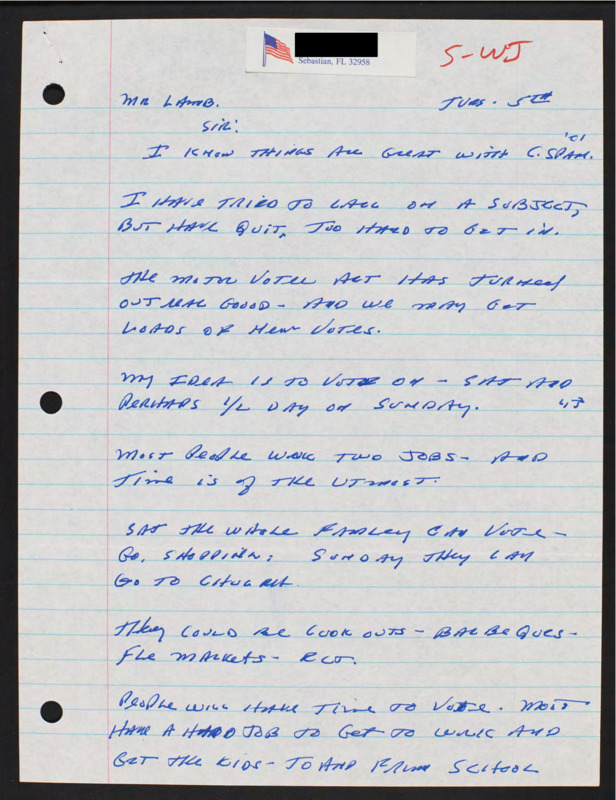 Sebastian, FL 32958
S-WJ
MR LAMB. TUES. 5TH
SIR:
I KNOW THINGS ARE GREAT WITH C.SPAN.
I HAVE TRIED TO CALL ON A SUBJECT,
BUT HAVE QUIT, TOO HARD TO GET IN.
THE MOTOR VOTER ACT HAS TURNED
OUT REAL GOOOD - AND WE MAY GET
LOADS OF NEW VOTES.
MY IDEA IS TO VOTE ON - SAT AND
PERHAPS 1/2 DAY ON SUNDAY.
MOST PEOPLE WORK TWO JOBS - AND
TIME IS OF THE UTMOST.
SAT THE WHOLE FAMLEY CAN VOTE -
GO, SHOPPING; SUNDAY THEY CAN
GO TO CHURCH.
THEY COULD BE COOK OUTS - BARBEQUES -
FLE MARKETS - ECT.
PEOPLE WILL HAVE TIME TO VOTE. MOST
HAVE A HARD JOB TO GET TO WORK AND
GET THE KIDS - TO AND FROM SCHOOL